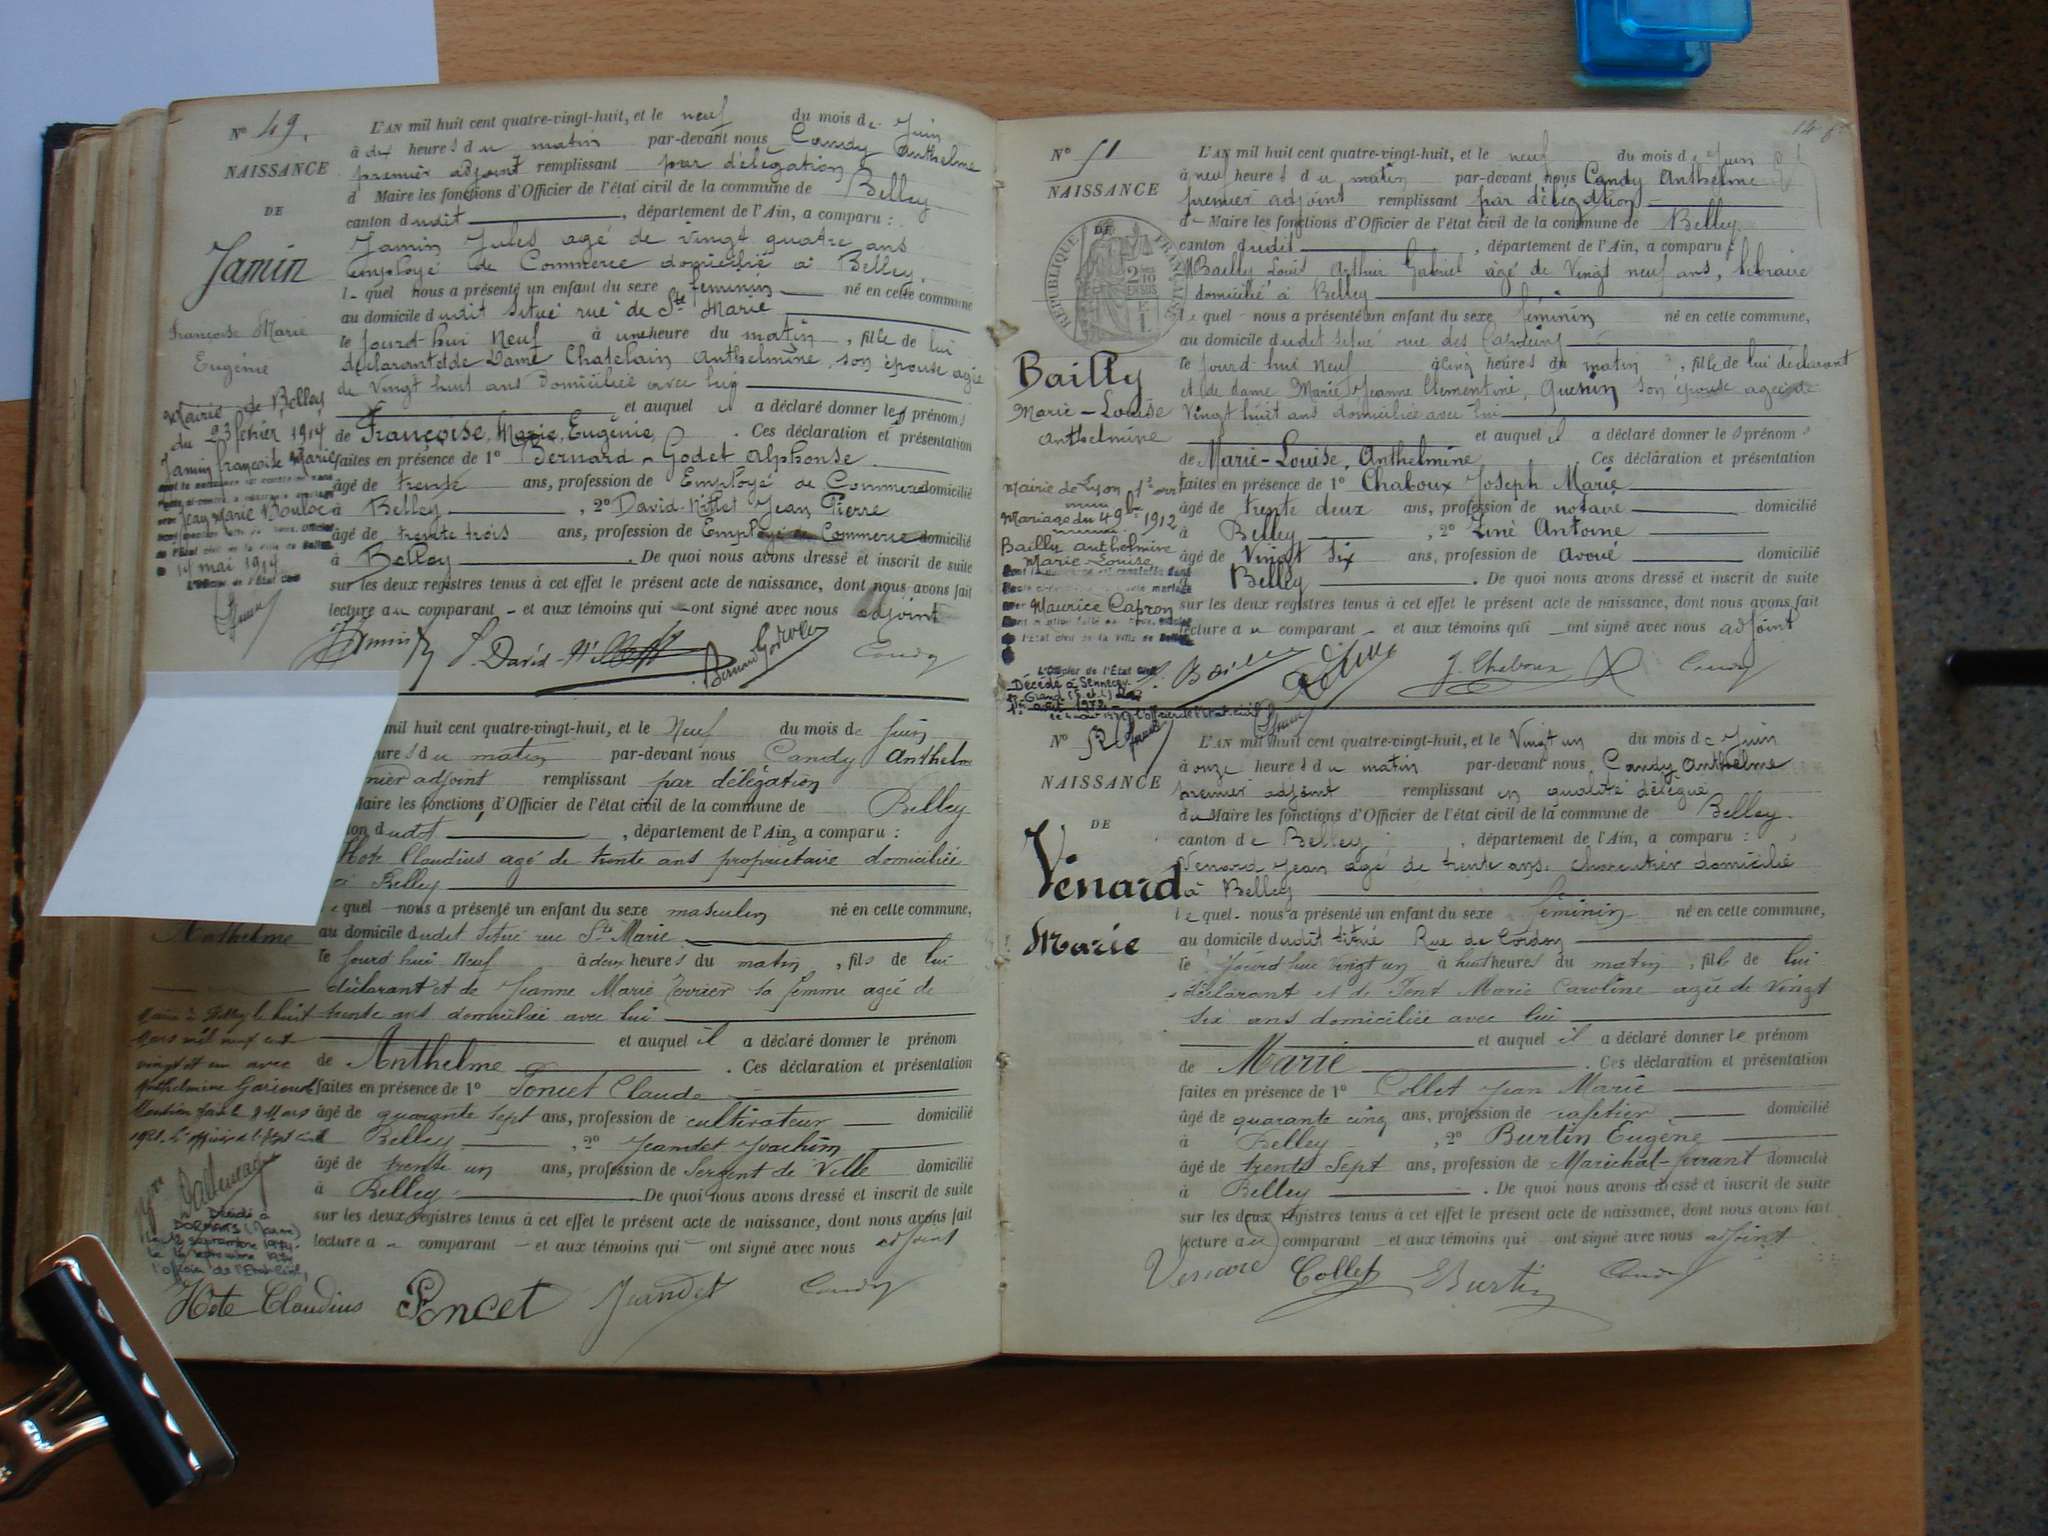 N° 49.
NAISSANCE
DE
Jamin
Françoise Marie
Eugénie
Mairie de Belley
du 23 février 1914
Jamin françoise Marie
Jean Marie Bouloc
14 mai 1914
L'AN mil huit cent quatre-vingt-huit, et le neuf du mois de Juin
à dix heures du matin par-devant nous Candy Anthelme
premier adjoint remplissant par délégation
d Maire les fonctions d'Officier de l'état civil de la commune de Belley
canton dudit, département de l'Ain, a comparu :
Jamin Jules agé de vingt quatre ans
employé de Commerce domicilié à Belley,
lequel nous a présenté un enfant du sexe féminin né en cette commune
au domicile dudit situé rue de Ste Marie
le jourd'hui Neuf à une heure du matin, fille de lui
déclarant et de Dame Chatelain Anthelmine, son épouse agée
de Vingt huit ans Domiciliée avec lui
et auquel il a déclaré donner les prénoms
de Françoise, Marie, Eugénie, . Ces déclaration et présentation
faites en présence de 1° Bernard-Godet Alphonse
âgé de trente ans, profession de Employé de Commerce domicilié
à Belley, 2° David-Nillet Jean Pierre
âgé de trente trois ans, profession de Employé de Commerce domicilié
à Belley. De quoi nous avons dressé et inscrit de suite
sur les deux registres tenus à cet effet le présent acte de naissance, dont nous avons fait
lecture au comparant et aux témoins qui ont signé avec nous adjoint
Jamin J. David-Nillet Bernard Godet Candy
mil huit cent quatre-vingt-huit, et le Neuf du mois de Juin
ures du matin par-devant nous Candy Anthelm
mier adjoint remplissant par délégation
Maire les fonctions d'Officier de l'état civil de la commune de Belley
ton dudit, département de l'Ain, a comparu :
Hote Claudius agé de trente ans propriétaire domicilié
à Belley
equel nous a présenté un enfant du sexe masculin né en cette commune,
Anthelme
au domicile dudit situé rue Ste Marie
le jourd'hui Neuf à deux heures du matin, fils de lui
déclarant et de Jeanne Marie Terrier sa femme agée de
trente ans domiciliée avec lui
et auquel il a déclaré donner le prénom
de Anthelme. Ces déclaration et présentation
faites en présence de 1° Poncet Claude
âgé de quarante sept ans, profession de cultivateur domicilié
Belley, 2° Jeandet Joachim
âgé de trente un ans, profession de Sergent de Ville domicilié
à Belley. De quoi nous avons dressé et inscrit de suite
sur les deux registres tenus à cet effet le présent acte de naissance, dont nous avons fait
lecture a comparant et aux témoins qui ont signé avec nous adjoint
Marié à Belley le huit
Mars mil neuf cent
vingt et un avec
Anthelmine
Mention faite 8 Mars
1921. L'officier de l'Etat Civil
Décédé à
DORMANS (Marne)
septembre 1974
L'officier de l'Etat Civil,
Hote Claudius Poncet Jeandet Candy
N° 51
NAISSANCE
DE
RÉPUBLIQUE FRANÇAISE
Bailly
Marie-Louise
Anthelmine
Mairie de Lyon 1er arr
Mariage du 4 9bre 1912
Bailly Anthelmine
Marie Louise
Maurice Capron
L'Officier de l'État Civil
Décédé à Sennecey-
le-Grand (S. et L)
L'AN mil huit cent quatre-vingt-huit, et le neuf du mois de Juin
à neuf heures du matin par-devant nous Candy Anthelme
premier adjoint remplissant par délégation
de Maire les fonctions d'Officier de l'état civil de la commune de Belley
canton dudit, département de l'Ain, a comparu :
Mr Bailly Louis Arthur Gabriel agé de Vingt neuf ans, libraire
domicilié à Belley
lequel nous a présenté un enfant du sexe féminin né en cette commune,
au domicile dudit situé rue des Capucins
le jourd'hui neuf à cinq heures du matin, fille de lui déclarant
et de dame Marie Jeanne Clémentine Guenin son épouse agée de
Vingt huit ans domiciliée avec lui
et auquel il a déclaré donner les prénoms
de Marie-Louise, Anthelmine Ces déclaration et présentation
faites en présence de 1° Chaboux Joseph Marie
âgé de trente deux ans, profession de notaire domicilié
à Belley, 2° Liné Antoine
âgé de Vingt six ans, profession de avoué domicilié
Belley. De quoi nous avons dressé et inscrit de suite
sur les deux registres tenus à cet effet le présent acte de naissance, dont nous avons fait
lecture au comparant et aux témoins qui ont signé avec nous adjoint
J. Chaboux Candy
N° 52
NAISSANCE
DE
Vénard
Marie
L'AN mil huit cent quatre-vingt-huit, et le Vingt un du mois de Juin
à onze heures du matin par-devant nous Candy Anthelme
premier adjoint remplissant en qualité délégué
du Maire les fonctions d'Officier de l'état civil de la commune de Belley.
canton de Belley, département de l'Ain, a comparu :
Venard Jean agé de trente ans. charpentier domicilié
à Belley
lequel nous a présenté un enfant du sexe féminin né en cette commune,
au domicile dudit situé Rue de Cordon
le jourd'hui vingt un à huit heures du matin, fille de lui
déclarant et de Pont Marie Caroline agée de Vingt
six ans domiciliée avec lui
et auquel il a déclaré donner le prénom
de Marie. Ces déclaration et présentation
faites en présence de 1° Collet Jean Marie
âgé de quarante cinq ans, profession de cafetier domicilié
à Belley, 2° Burtin Eugène
âgé de trente Sept ans, profession de Maréchal-ferrant domicilié
à Belley. De quoi nous avons dressé et inscrit de suite
sur les deux registres tenus à cet effet le présent acte de naissance, dont nous avons fait
lecture au comparant et aux témoins qui ont signé avec nous adjoint
Venard Collet Burtin Candy